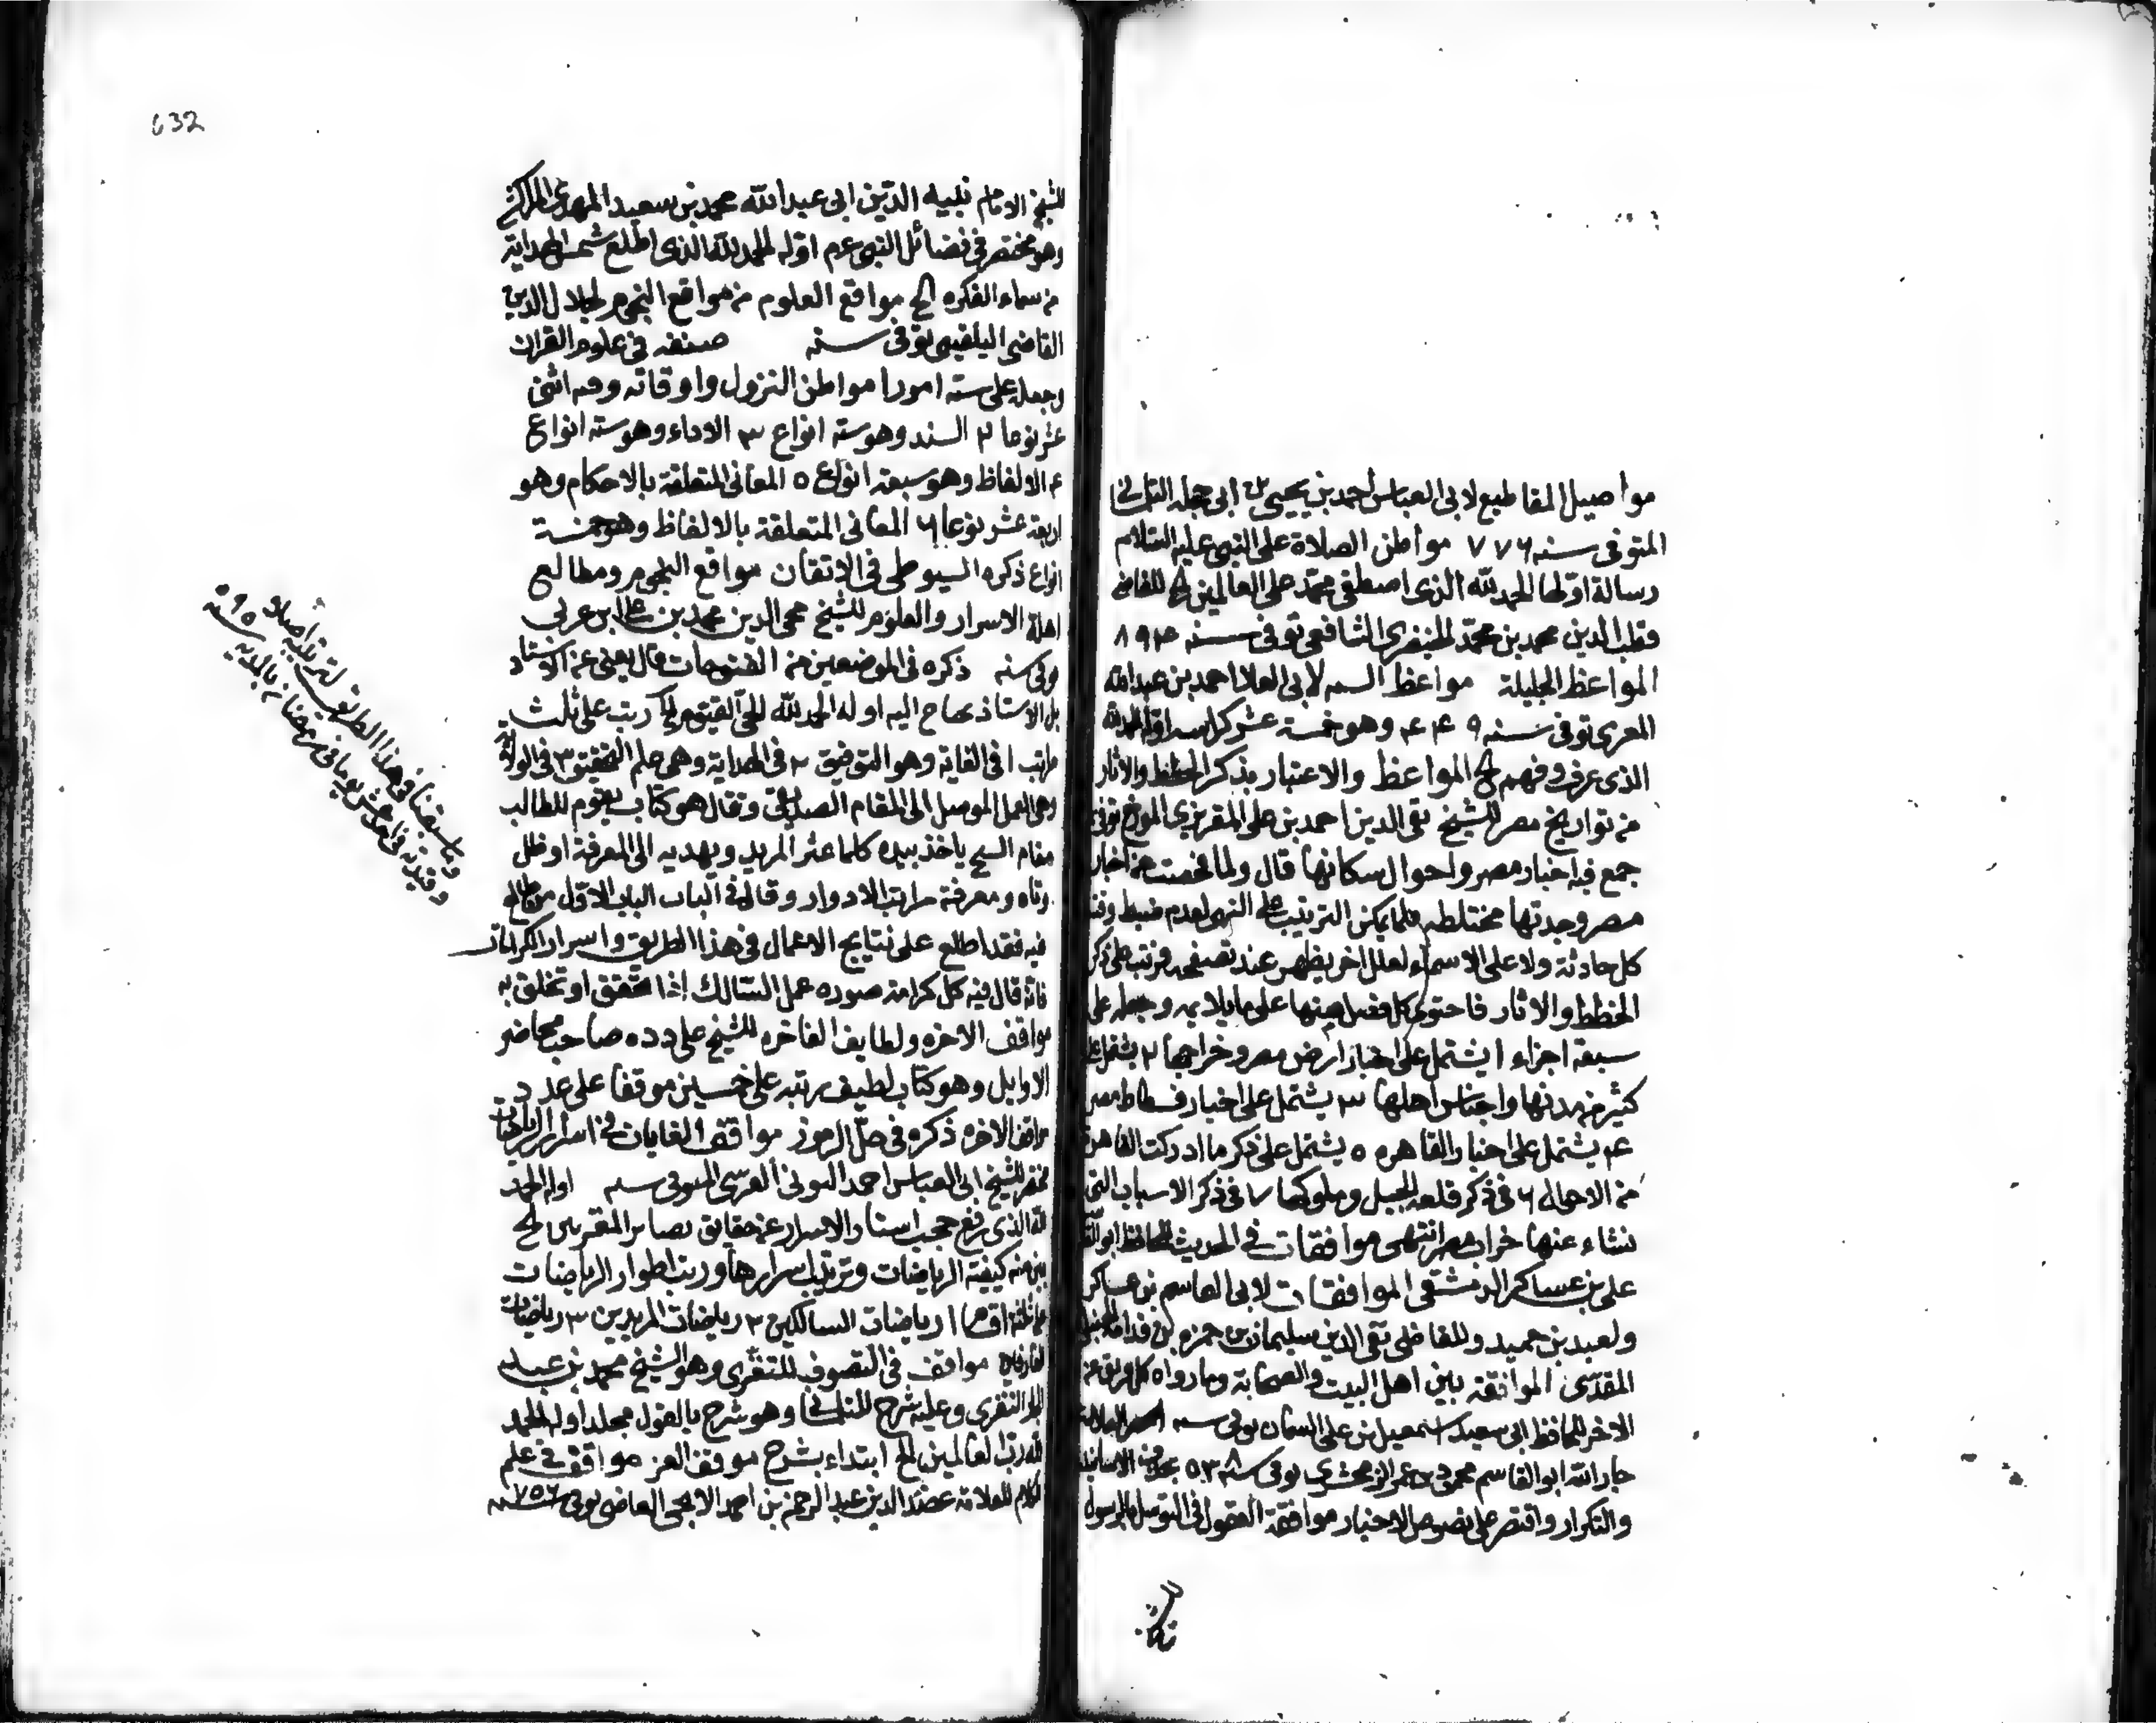 مواصيل المقاطيع لابى العباس احمد بن يحيى بن ابى حجله التلمسانى
المتوفى سنه ٧٧٦ مواطن الصلاة على النبى عليه السلام
رسالة اولها الحمد لله الذى اصطفى محمد على العالمين الخ للقاضى
قطب الدين محمد بن محمد الخيضرى الشافعى توفى سنه ٨٩٤
المواعظ الجليلة مواعظ الست لابى العلا احمد بن عبد الله
المعرى توفى سنه ٤٤٩ وهو خمسة عشر كراسه اوله الحمد لله
الذى عرف وفهم الخ المواعظ والاعتبار بذكر الخطط والاثار
من تواريخ مصر للشيخ تقى الدين احمد بن على المقريزى المورخ توفى
جمع فيه اخبار مصر واحوال سكانها قال ولما فحصت عن اخبار
مصر وجدتها مختلطه فلم يمكن الترتيب على السنين لعدم ضبط وقت
كل حادثة ولا على الاسماء لعلل اخر يظهر عند تصفحه فرتب على ذكر
الخطط والاثار فاحتوى كل فصل منها على ما يلايمه وجعله على
سبعة اجزاء ١ يشتمل على اخبار ارض مصر وخراجها ٢ يشتمل على
كثير من مدنها واجناس اهلها ٣ يشتمل على اخبار فسطاط مصر
٤ يشتمل على اخبار القاهره ٥ يشتمل على ذكر ما ادركت القاهرة
من الاحوال ٦ فى ذكر قلعه الجبل وملوكها ٧ فى ذكر الاسباب التى
نشاء عنها خراب مصر انتهى موافقات فى الحديث للحافظ ابو القاسم
على بن عساكر الدمشقى الموافقات لابى القاسم بن عساكر
ولعبد بن حميد وللقاضى تقى الدين سليمان بن حمزه بن قدامه الحنبلى
المقدسى الموافقة بين اهل البيت والصحابة وما رواه كل فريق عن
الاخر للحافظ ابى سعيد اسمعيل بن على السمان توفى سنه اختصره العلامة
جار الله ابو القاسم محمود بن عمر الزمخشرى توفى سنه ٥٣٨ بحذف الاسانيد
والتكرار واقتصر على نصوص الاخبار موافقة العقول فى التوسل بالرسول
للشيخ الامام نبيه الدين ابى عبد الله محمد بن سعيد المهدى المراكشى
وهو مختصر فى فضائل النبى عم اوله الحمد لله الذى اطلع شمس الهداية
من سماء الفكره الخ مواقع العلوم من مواقع النجوم لجلال الدين
القاضى البلقينى توفى سنه صنفه فى علوم القران
وجعله على سته امور ا مواطن النزول واوقاته وفيه اثنى
عشر نوعا ٢ السند وهو ستة انواع ٣ الاداء وهو ستة انواع
٤ الالفاظ وهو سبعة انواع ٥ المعانى المتعلقة بالاحكام وهو
اربعة عشر نوعا ٦ المعانى المتعلقة بالالفاظ وهو خمسة
انواع ذكره السيوطى فى الاتقان مواقع النجوم ومطالع
اهلة الاسرار والعلوم للشيخ محى الدين محمد بن على ابن عربى
توفى سنه ذكره فى الموضعين من الفتوحات قال يغنى عن الاستاد
بل الاستاذ محتاج اليه اوله الحمد لله الحى القيوم الخ رتب على ثلث
مراتب ا فى الغاية وهو التوفيق ٢ فى الهداية وهى علم التحقيق ٣ فى الولاية
وهى العمل الموصل الى المقام الصديق وقال هو كتاب يقوم للطالب
مقام الشيخ ياخذ بيده كلما عثر المريد ويهديه الى المعرفة اذ ضل
وتاه ومعرفة مراتب الادوار وقال فى الباب الاول من طالع
فيه فقد اطلع على نتايج الاعمال فى هذا الطريق واسرار الكرامات
فانه قال فيه كل كرامة صوره عمل السالك اذا تحقق او تخلق به
مواقف الاخره ولطايف الفاخره للشيخ على دده صاحب محاضر
الاوايل وهو كتاب لطيف مرتبه على خمسين موقفا على عدد
مواقف الاخره ذكره فى حل الرموز مواقف الغايات فى اسرار الرياضات
مختصر للشيخ ابى العباس احمد البونى القرشى المتوفى سنه اوله الحمد
لله الذى رفع حجب استار الاسرار عن حقايق بصاير المقربين الخ
بين منه كيفية الرياضات وترتيب اسرارها ورتب اطوار الرياضات
على ثلثة اقسام ا رياضات السالكين ٢ رياضات المريدين ٣ رياضيات
العارفين مواقف فى التصوف للنفرى وهو الشيخ محمد بن عبد
الجبار النفرى وعليه شرح للتلمسانى وهو شرح بالقول مجلد اوله الحمد
لله رب العالمين الخ ابتداء بشرح موقف العز مواقف فى علم
الكلام للعلامة عضد الدين عبد الرحمن بن احمد الايجى القاضى توفى سنه ٧٥٦
وما سبقنا فى هذا الطريق لترتيبه اصلا و
وقيدته فى احد عشر يوما فى رمضان بالمريه سنة ٥٩٥
632